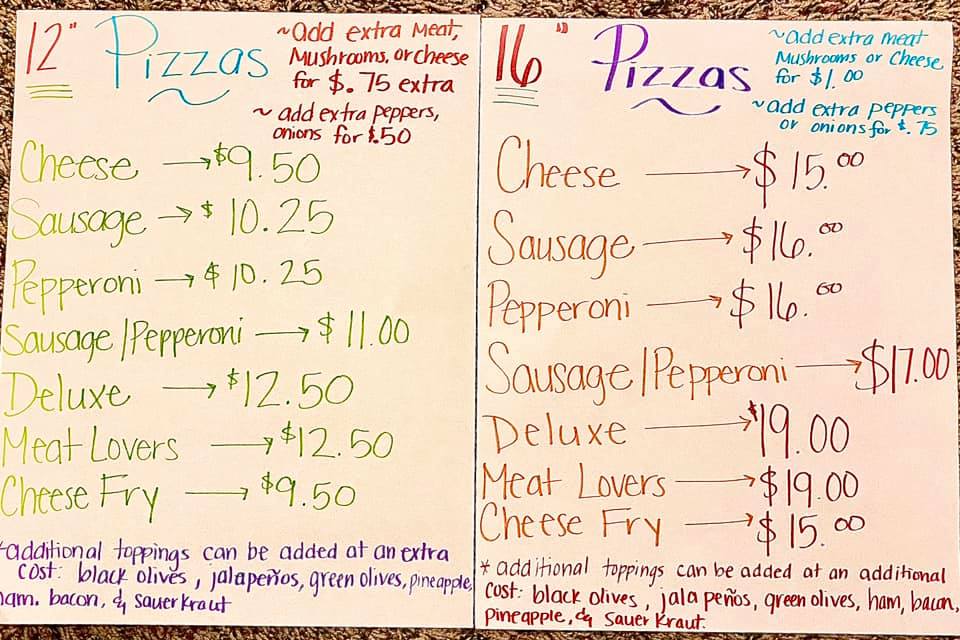 12" Pizzas
~add extra Meat,
Mushrooms, or Cheese
for $.75 extra
~ add extra peppers,
onions for $.50
Cheese → $9.50
Sausage → $ 10.25
Pepperoni → $ 10.25
Sausage/Pepperoni → $ 11.00
Deluxe → $12.50
Meat Lovers → $12.50
Cheese Fry → $9.50
*additional toppings can be added at an extra
cost: black olives, jalapeños, green olives, pineapple,
ham, bacon, & sauerkraut
16" Pizzas
~add extra meat
Mushrooms or Cheese
for $1.00
~add extra peppers
or onions for $.75
Cheese → $15.00
Sausage → $16.00
Pepperoni → $16.00
Sausage/Pepperoni → $17.00
Deluxe → $19.00
Meat Lovers → $19.00
Cheese Fry → $15.00
* additional toppings can be added at an additional
cost: black olives, jalapeños, green olives, ham, bacon,
pineapple, & Sauer Kraut.